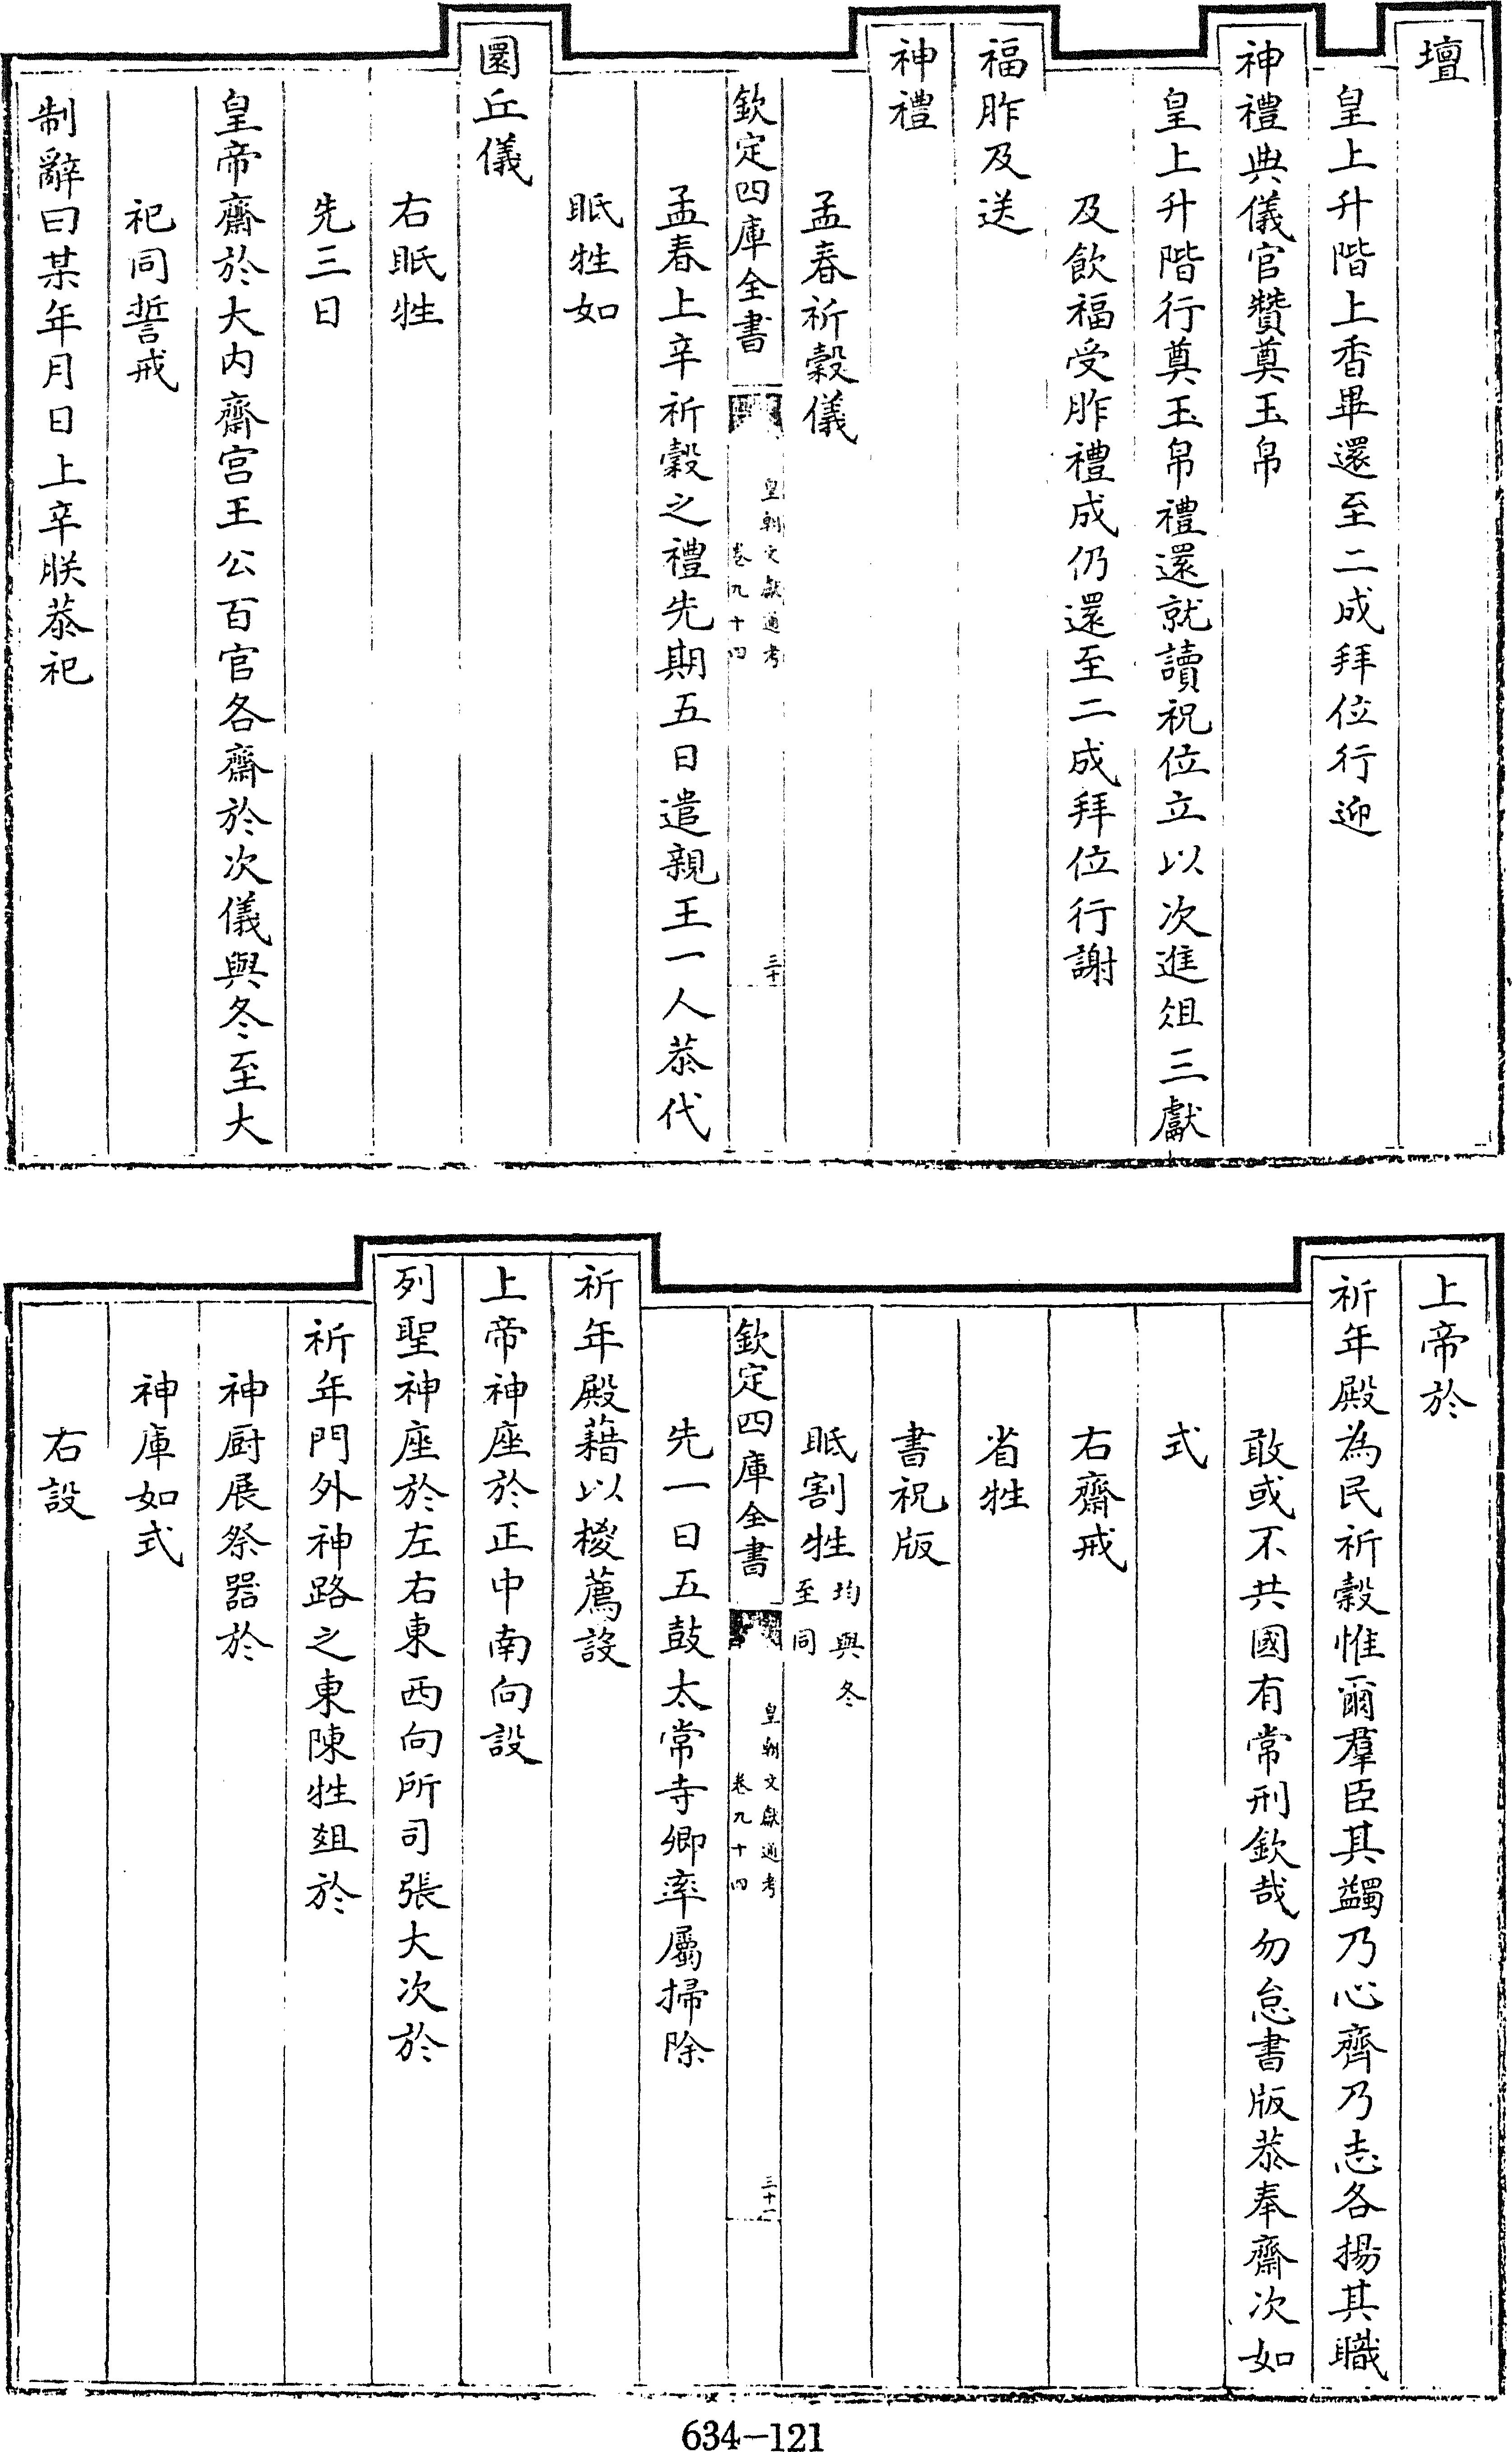 壇
皇上升階上香畢還至二成拜位行迎
神禮典儀官贊奠玉帛
皇上升階行奠玉帛禮還就讀祝位立以次進俎三獻
及飲福受胙禮成仍還至二成拜位行謝
福胙及送
神禮
孟春祈穀儀
欽定四庫全書
皇朝文獻通考
卷九十四
三十
孟春上辛祈穀之禮先期五日遣親王一人恭代
眡牲如
圜丘儀
右眡牲
先三日
皇帝齋於大内齋宫王公百官各齋於次儀與冬至大
祀同誓戒
制辭曰某年月日上辛朕恭祀
上帝於
祈年殿為民祈穀惟爾羣臣其蠲乃心齊乃志各揚其職
敢或不共國有常刑欽哉勿怠書版恭奉齋次如
式
右齋戒
省牲
書祝版
眡割牲均與冬
至同
欽定四庫全書
皇朝文獻通考
卷九十四
三十一
先一日五鼓太常寺卿率屬掃除
祈年殿藉以椶薦設
上帝神座於正中南向設
列聖神座於左右東西向所司張大次於
祈年門外神路之東陳牲俎於
神厨展祭器於
神庫如式
右設
634-121